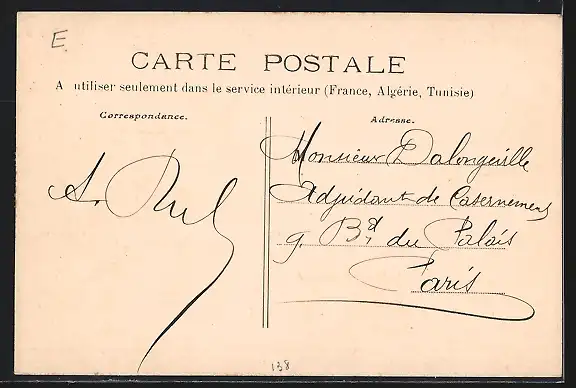 E
CARTE POSTALE
A utiliser seulement dans le service intérieur (France, Algérie, Tunisie)
Correspondance.
Adresse.
A.
Monsieur Dalongeville
Adjudant de Casernement
9, Bd du Palais
Paris
138